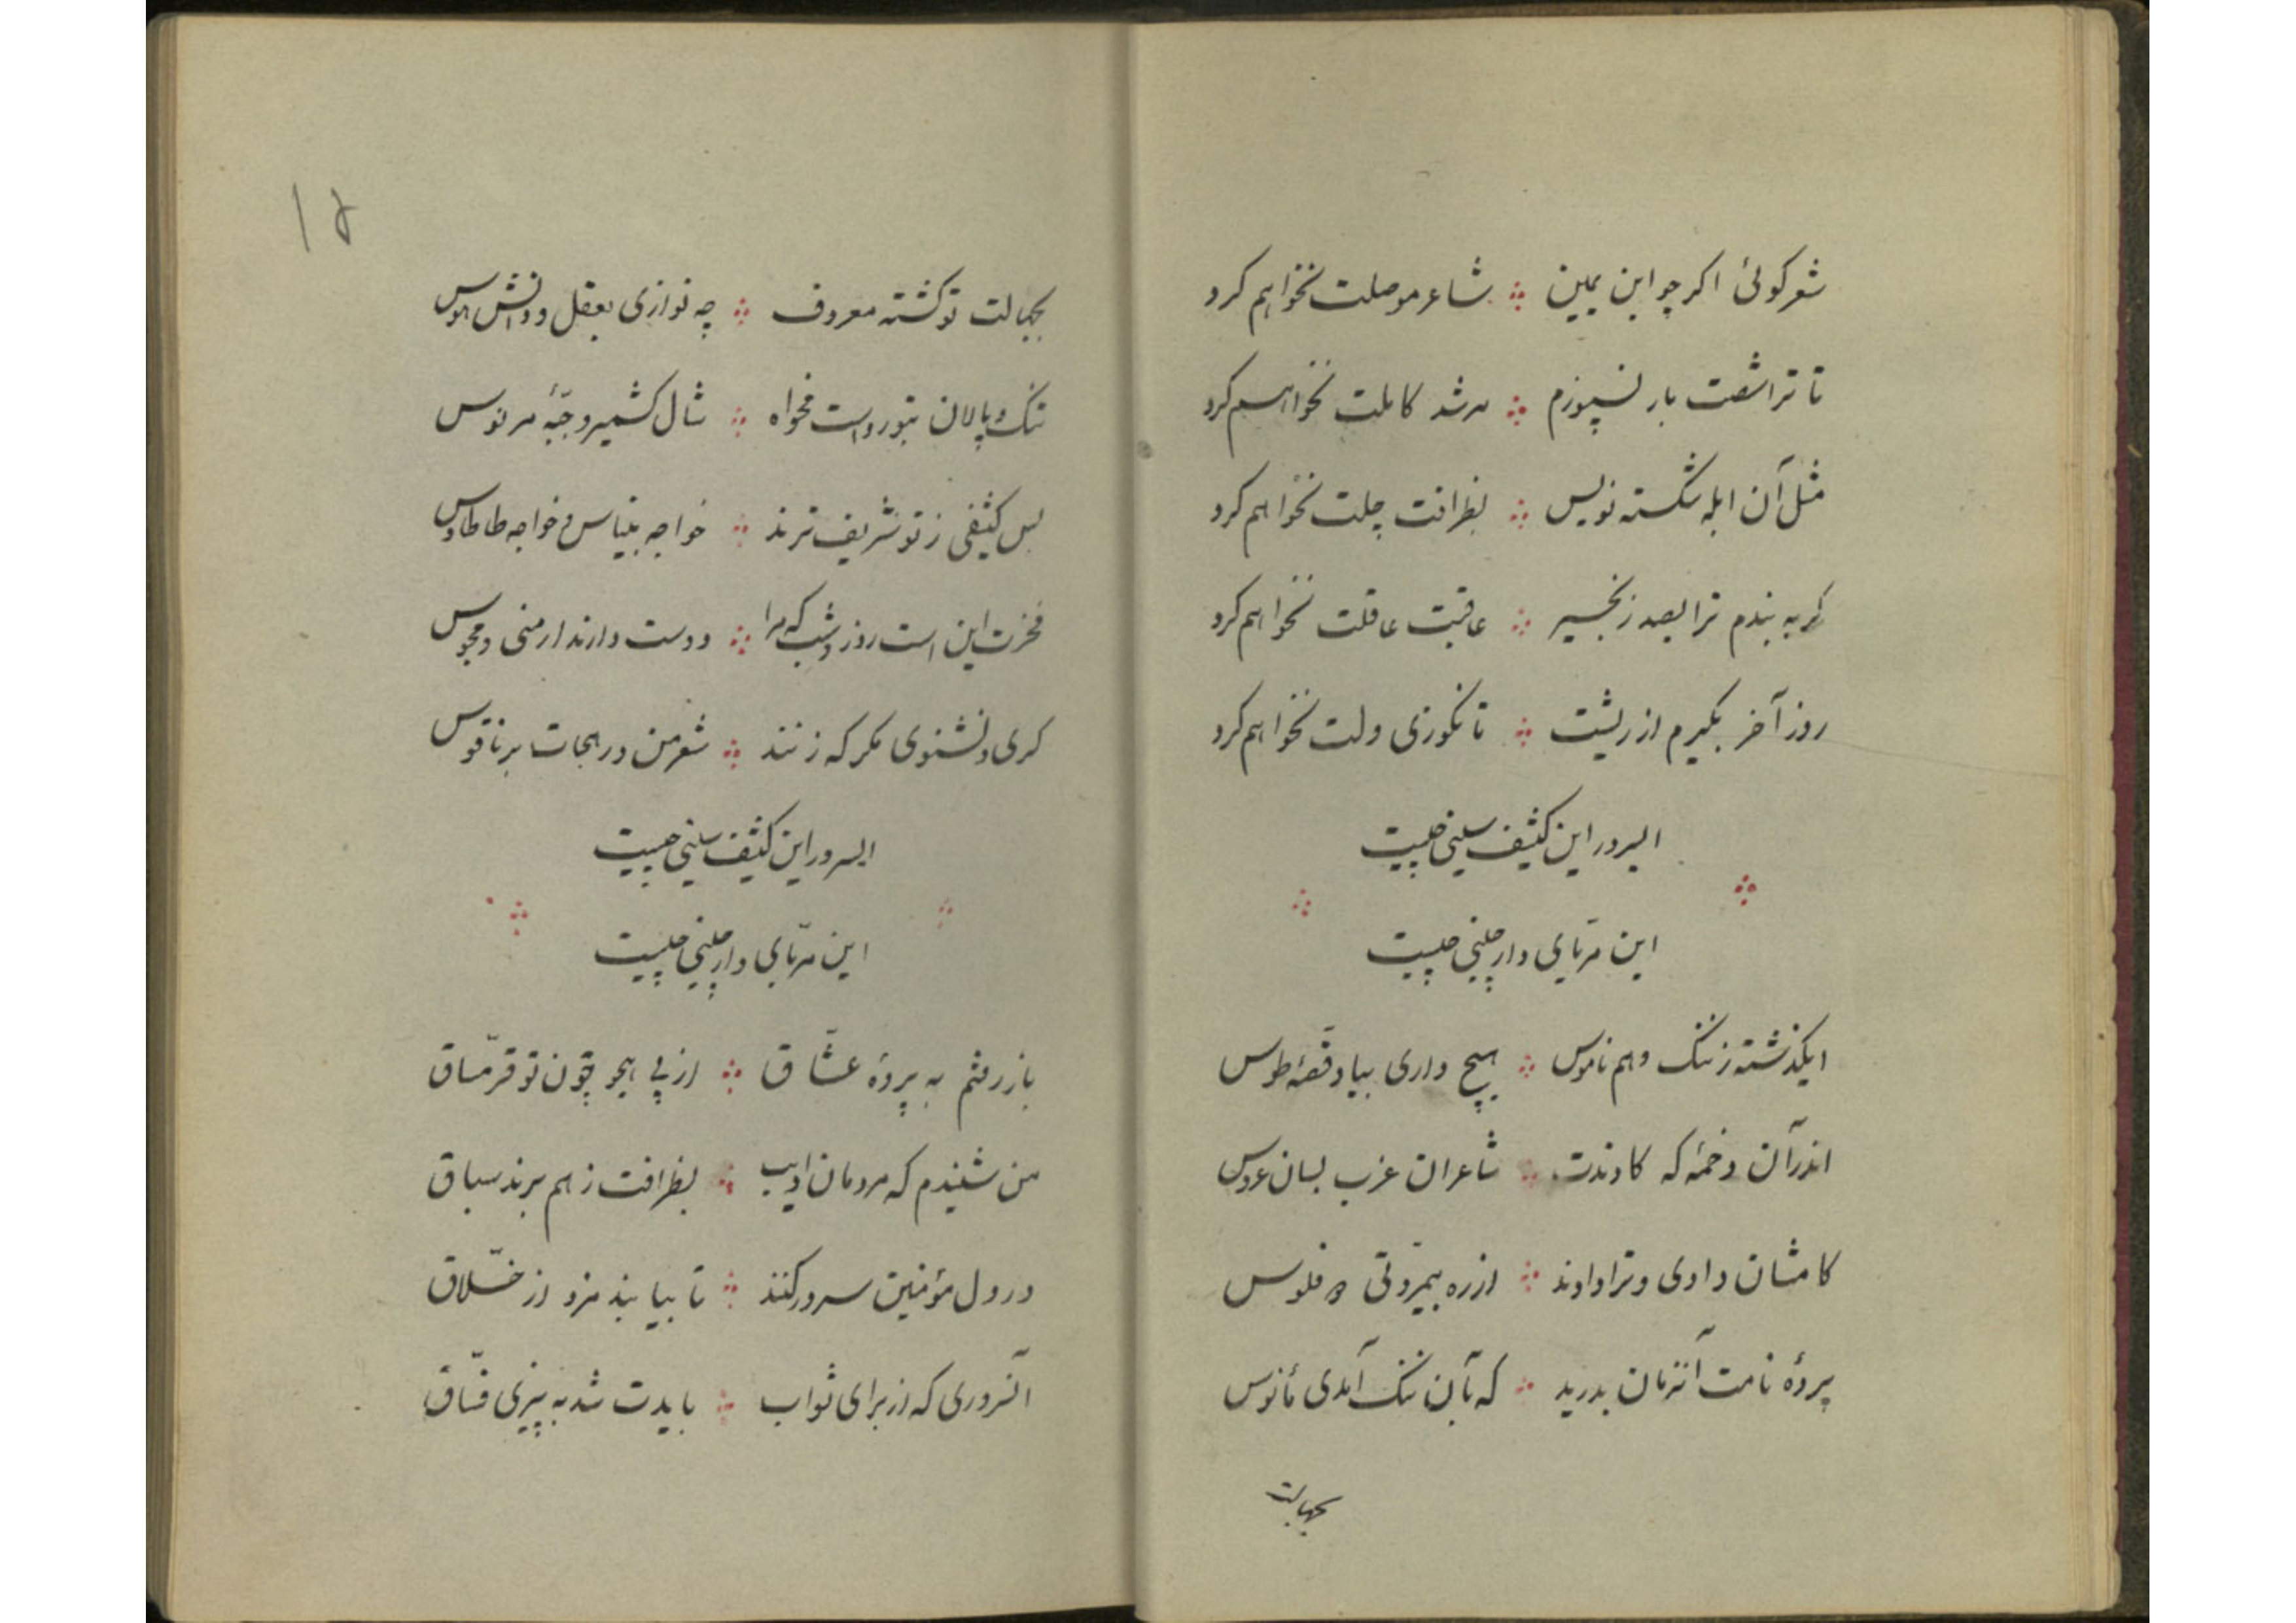 شعر کوئی اکر چو ابن یمین ∴ شاعر موصلت نخواهم کرد
تا ترا شصت بار نسپوزم ∴ مرشد کاملت نخواهم کرد
مثل آن ابله شکسته نویس ∴ بظرافت چلت نخواهم کرد
کر به بندم ترا بصد زنجیر ∴ عاقبت عاقلت نخواهم کرد
روز آخر بکیرم از ریشت ∴ تا نکوزی ولت نخواهم کرد
السرور این کثیف سینی چیست
این مربّای دارچینی چیست
ایکذشته ز ننک و هم ناموس ∴ هیچ داری بیاد قصّهٔ طوس
اندر آن دخمهٔ که کادندت ∴ شاعران عزب بسان عروس
کامشان دادی و ترا دادند ∴ از ره بیمروّتی فلوس
پردهٔ نامت آنزمان بدرید ∴ که بآن ننک آمدی مأنوس
بجهالت
۱۵
بجهالت تو کشته معروف ∴ چه نوازی بعقل و دانش کوس
تنک و پالان بتو رواست مخواه ∴ شال کشمیر و جبّهٔ مرنوس
بس کثیفی ز تو شریف ترند ∴ خواجه بنیاس و خواجه طاطاوس
فخرت این است روز و شب که مرا ∴ دوست دارند ارمنی و مجوس
کری و نشنوی مکر که زنند ∴ شعر من در هجات بر ناقوس
السرور این کثیف سینی چیست
این مربّای دارچینی چیست
باز رفتم به پردهٔ عشّاق ∴ از پی هجو چون تو قرمّساق
من شنیدم که مردمان ادیب ∴ بظرافت ز هم برند سباق
در دل مؤمنین سرور کنند ∴ تا بیابند مزد از خلّاق
آنسروری که از برای ثواب ∴ بایدت شد به پیزی فسّاق